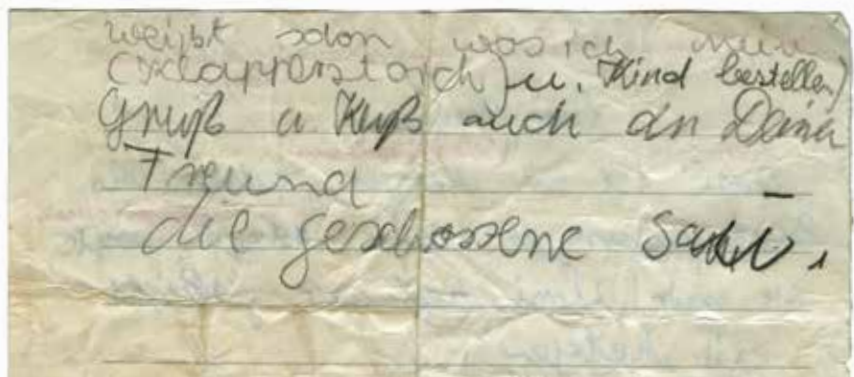 weißt schon was ich mein
(Klapperstorch) u. Kind bestellen)
Gruß u Kuß auch an Deinen
Freund
die geschossene